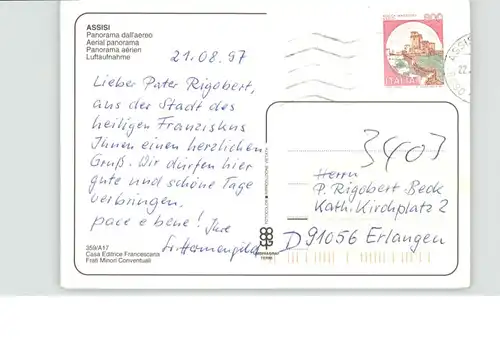 ASSISI
Panorama dall'aereo
Aerial panorama
Panorama aérien
Luftaufnahme
21.08.97
Lieber Pater Rigobert,
aus der Stadt des
heiligen Franziskus
Ihnen einen herzlichen
Gruß. Wir dürfen hier
gute und schöne Tage
verbringen.
pace e bene! Ihre
Sr. Hermengild
359/A17
Casa Editrice Francescana
Frati Minori Conventuali
ITALIA
ASSISI
22.
3403
Herrn
P. Rigobert Beck
Kath. Kirchplatz 2
D 91056 Erlangen